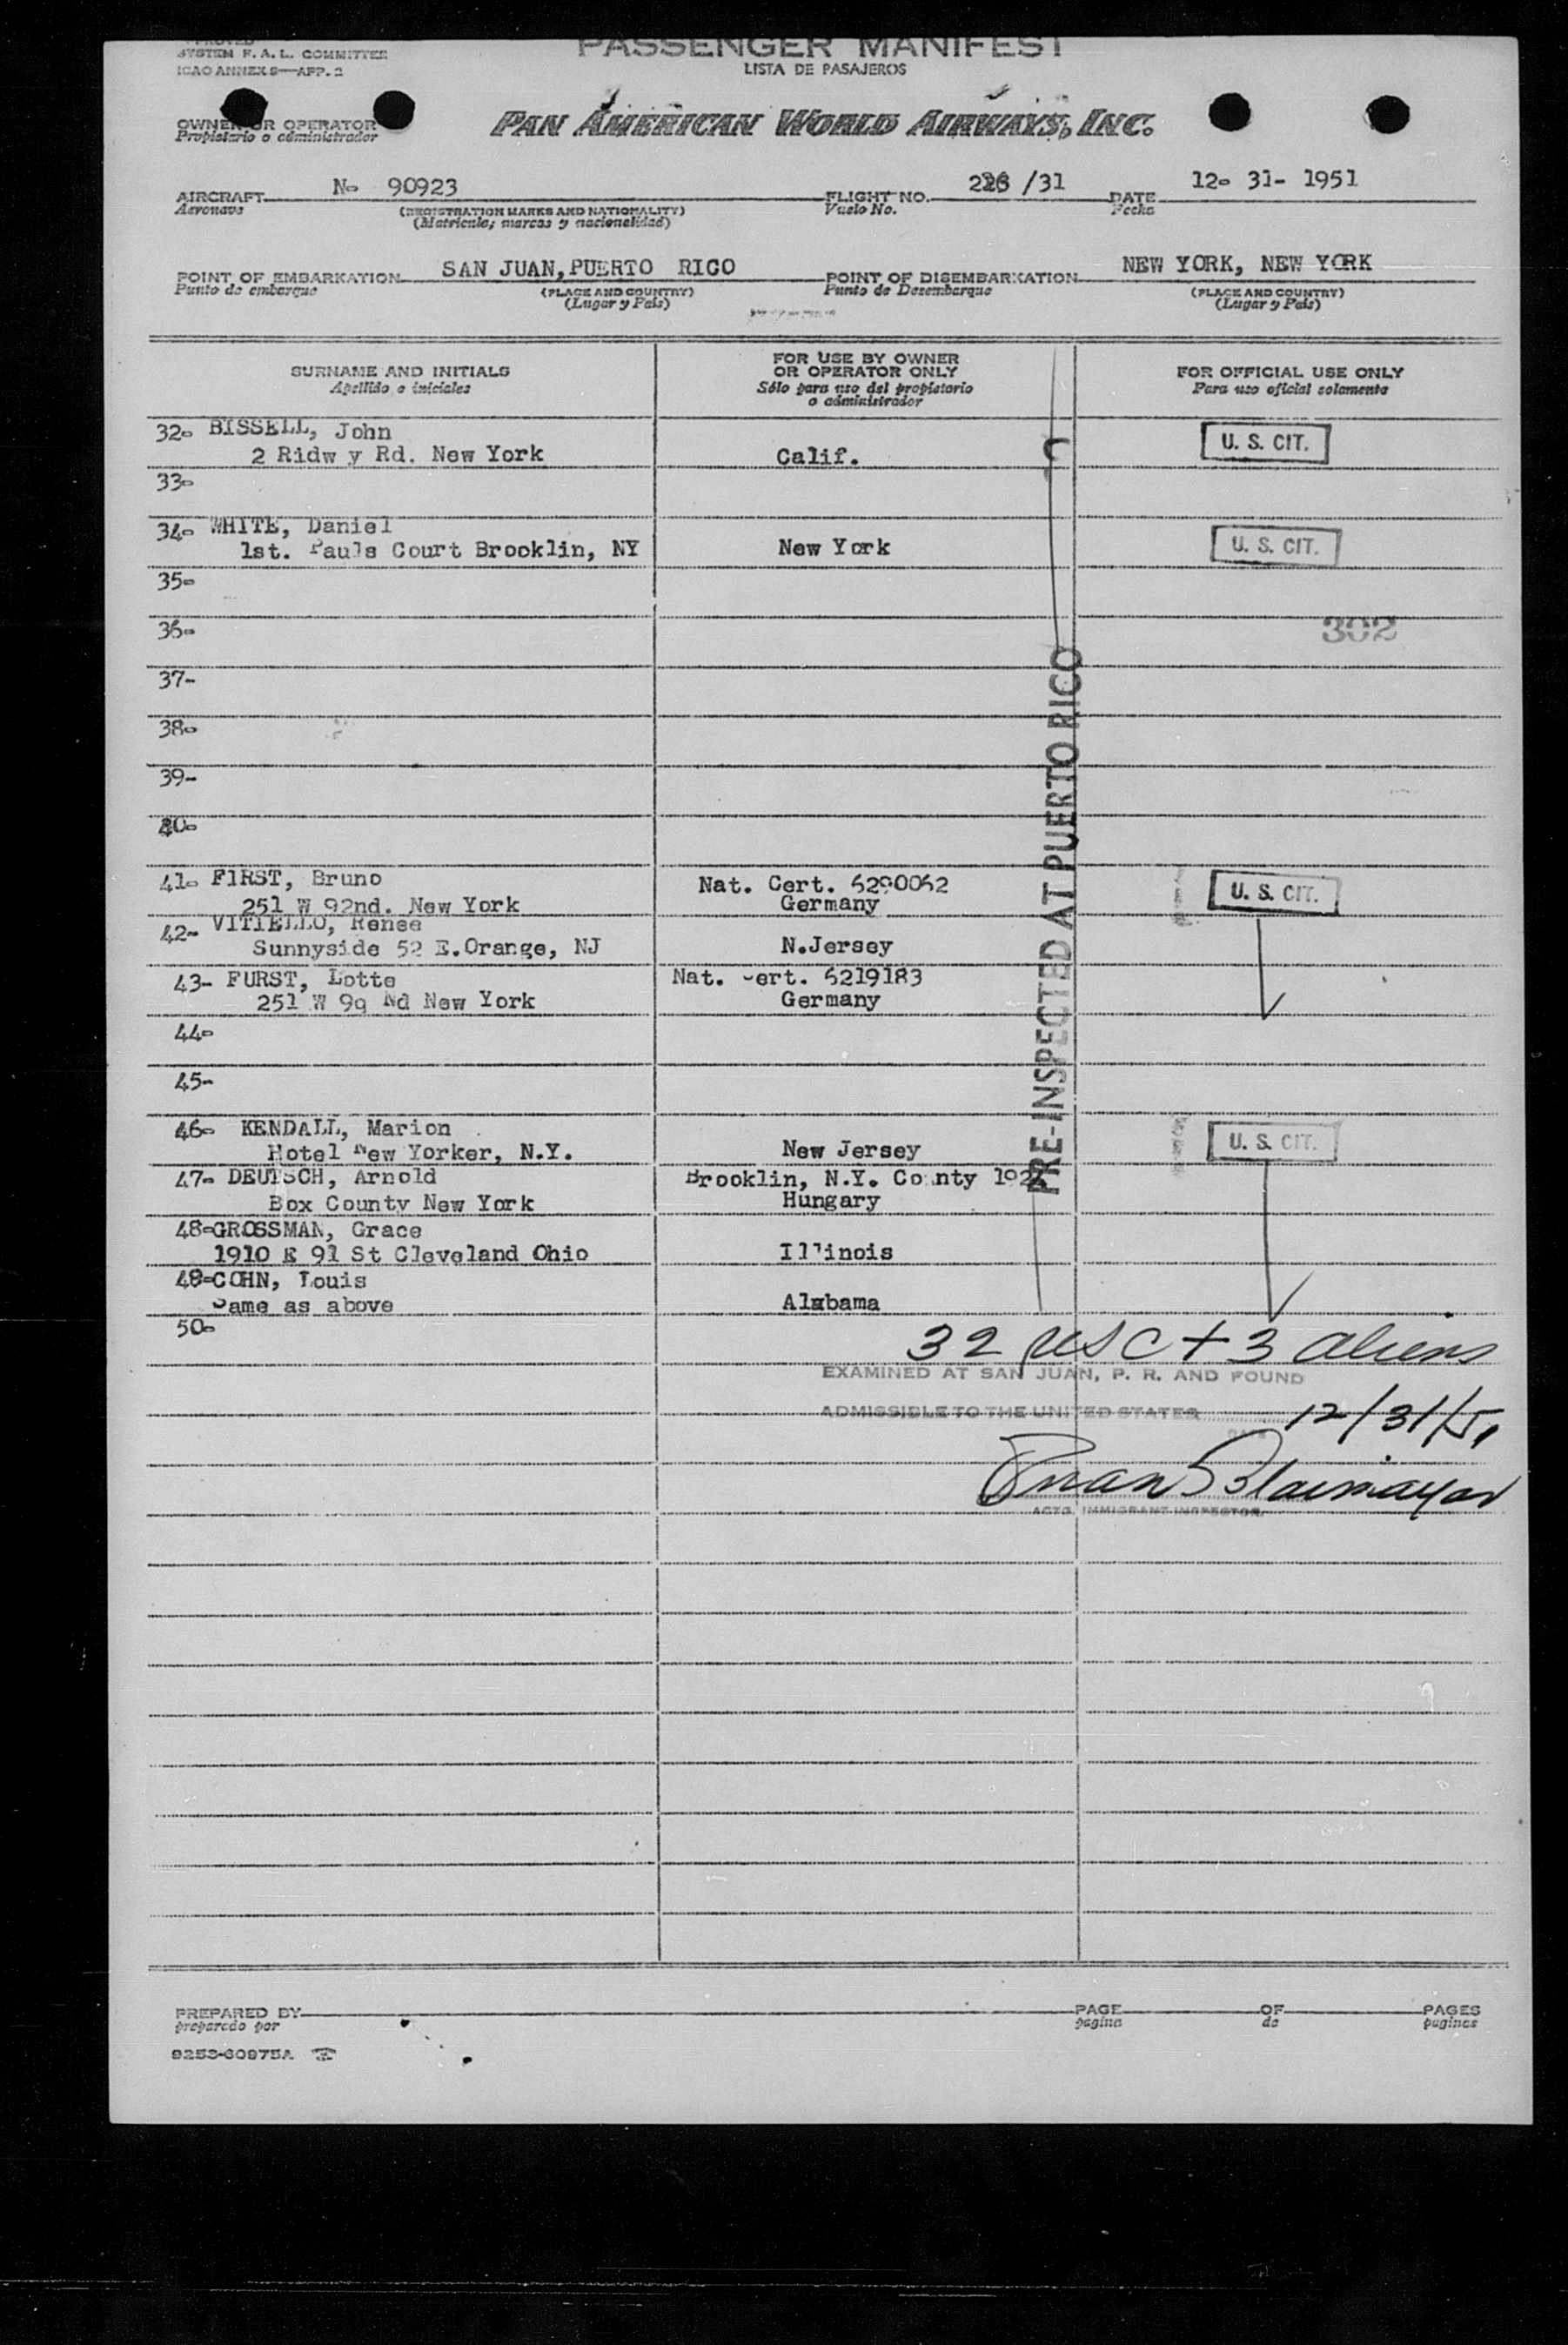 PASSENGER MANIFEST
SYSTEM F. A. L. COMMITTEE
LISTA DE PASAJEROS
ICAO ANNEX 9—APP. 2
OWNER OR OPERATOR
PAN AMERICAN WORLD AIRWAYS, INC.
Propietario o administrador
AIRCRAFT N- 90923 FLIGHT NO. /31 DATE 12- 31- 1951
Aeronave (REGISTRATION MARKS AND NATIONALITY) Vuelo No. Fecha
(Matricula; marcas y nacionalidad)
POINT OF EMBARKATION SAN JUAN, PUERTO RICO POINT OF DISEMBARKATION NEW YORK, NEW YORK
Punto de embarque (PLACE AND COUNTRY) Punto de Desembarque (PLACE AND COUNTRY)
(Lugar y País) (Lugar y País)
SURNAME AND INITIALS FOR USE BY OWNER OR OPERATOR ONLY FOR OFFICIAL USE ONLY
Apellido o iniciales Sólo para uso del propietario o administrador Para uso oficial solamente
32- BISSELL, John U. S. CIT.
2 Ridw y Rd. New York Calif.
33-
34- WHITE, Daniel
1st. Pauls Court Brooklin, NY New York U. S. CIT.
35-
36- 302
37-
38-
39-
40-
PRE-INSPECTED AT PUERTO RICO
41- FIRST, Bruno Nat. Cert. 6290062 U. S. CIT.
251 W 92nd. New York Germany
42- VITIELLO, Renee
Sunnyside 52 E.Orange, NJ N.Jersey
43- FURST, Lotte Nat. Cert. 6219183
251 W 99 Nd New York Germany
44-
45-
46- KENDALL, Marion
Hotel New Yorker, N.Y. New Jersey U. S. CIT.
47- DEUTSCH, Arnold Brooklin, N.Y. County
Box County New York Hungary
48-GROSSMAN, Grace
1910 E 91 St Cleveland Ohio Illinois
49-COHN, Louis
Same as above Alabama
50-
32 USC + 3 aliens
EXAMINED AT SAN JUAN, P. R. AND FOUND
ADMISSIBLE TO THE UNITED STATES 12/31/51
DATE
ACTG. IMMIGRANT INSPECTOR
PREPARED BY PAGE OF PAGES
preparado por pagina de paginas
9253-60975A